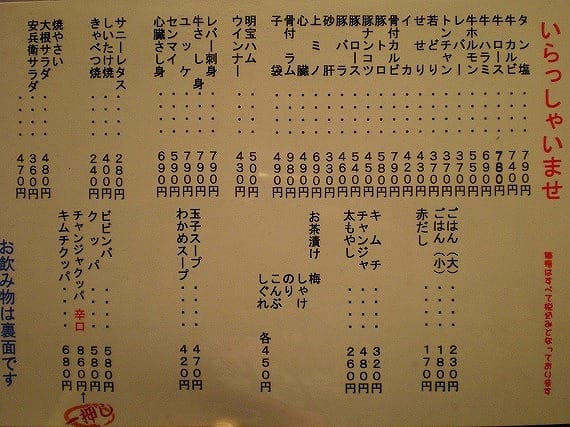 いらっしゃいませ
価格はすべて税込みとなっております
タン塩・・・790円
牛カルビ・・・740円
牛ロース・・・780円
牛ハラミ・・・690円
牛ホルモン・・・円
レバー・・・円
トンチャン・・・370円
若どり・・・円
せせり・・・420円
イカ・・・430円
骨付カルビ・・・790円
豚トロ・・・円
豚ナンコツ・・・円
豚ロース・・・540円
豚バラ・・・円
砂肝・・・円
上ミノ・・・690円
心臓・・・490円
骨付ラム・・・980円
子袋・・・490円
明宝ハム・・・500円
ウインナー・・・430円
レバー刺身・・・790円
牛さし身・・・790円
ユッケ・・・790円
センマイ・・・590円
心臓さし身・・・690円
サニーレタス・・・280円
しいたけ焼・・・400円
きゃべつ焼・・・240円
焼やさい・・・480円
大根サラダ・・・360円
安兵衛サラダ・・・470円
ごはん（大）・・・230円
ごはん（小）・・・180円
赤だし・・・170円
キムチ・・・320円
チャンジャ・・・480円
太もやし・・・260円
お茶漬け 梅
しゃけ
のり
こんぶ
しぐれ 各450円
玉子スープ・・・470円
わかめスープ・・・420円
ビビンバ・・・580円
クッパ・・・580円
チャンジャクッパ 辛口 860円
↑
一押し
キムチクッパ・・・680円
お飲み物は裏面です